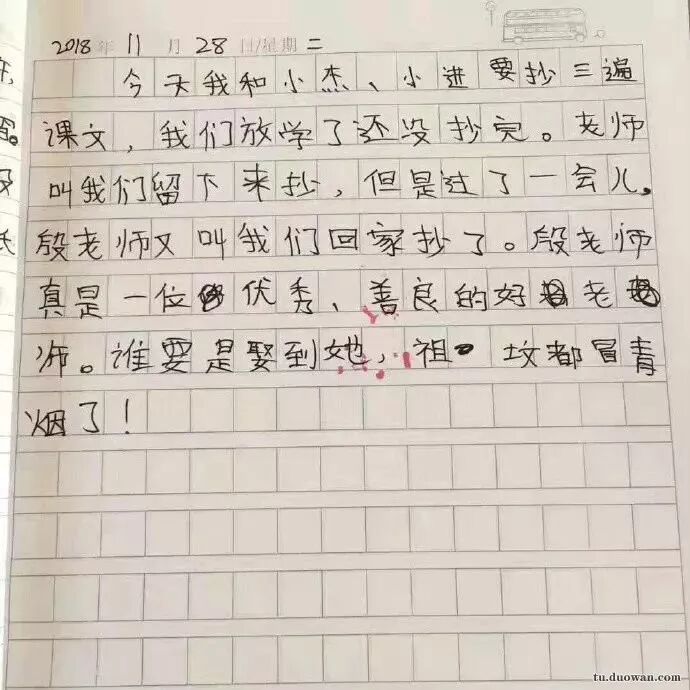 2018年 11月 28日/星期二
今天我和小杰、小进要抄三遍
课文，我们放学了还没抄完。老师
叫我们留下来抄，但是过了一会儿。
殷老师又叫我们回家抄了。殷老师
真是一位优秀、善良的好老
师。谁要是娶到她，祖坟都冒青
烟了！
tu.duowan.com